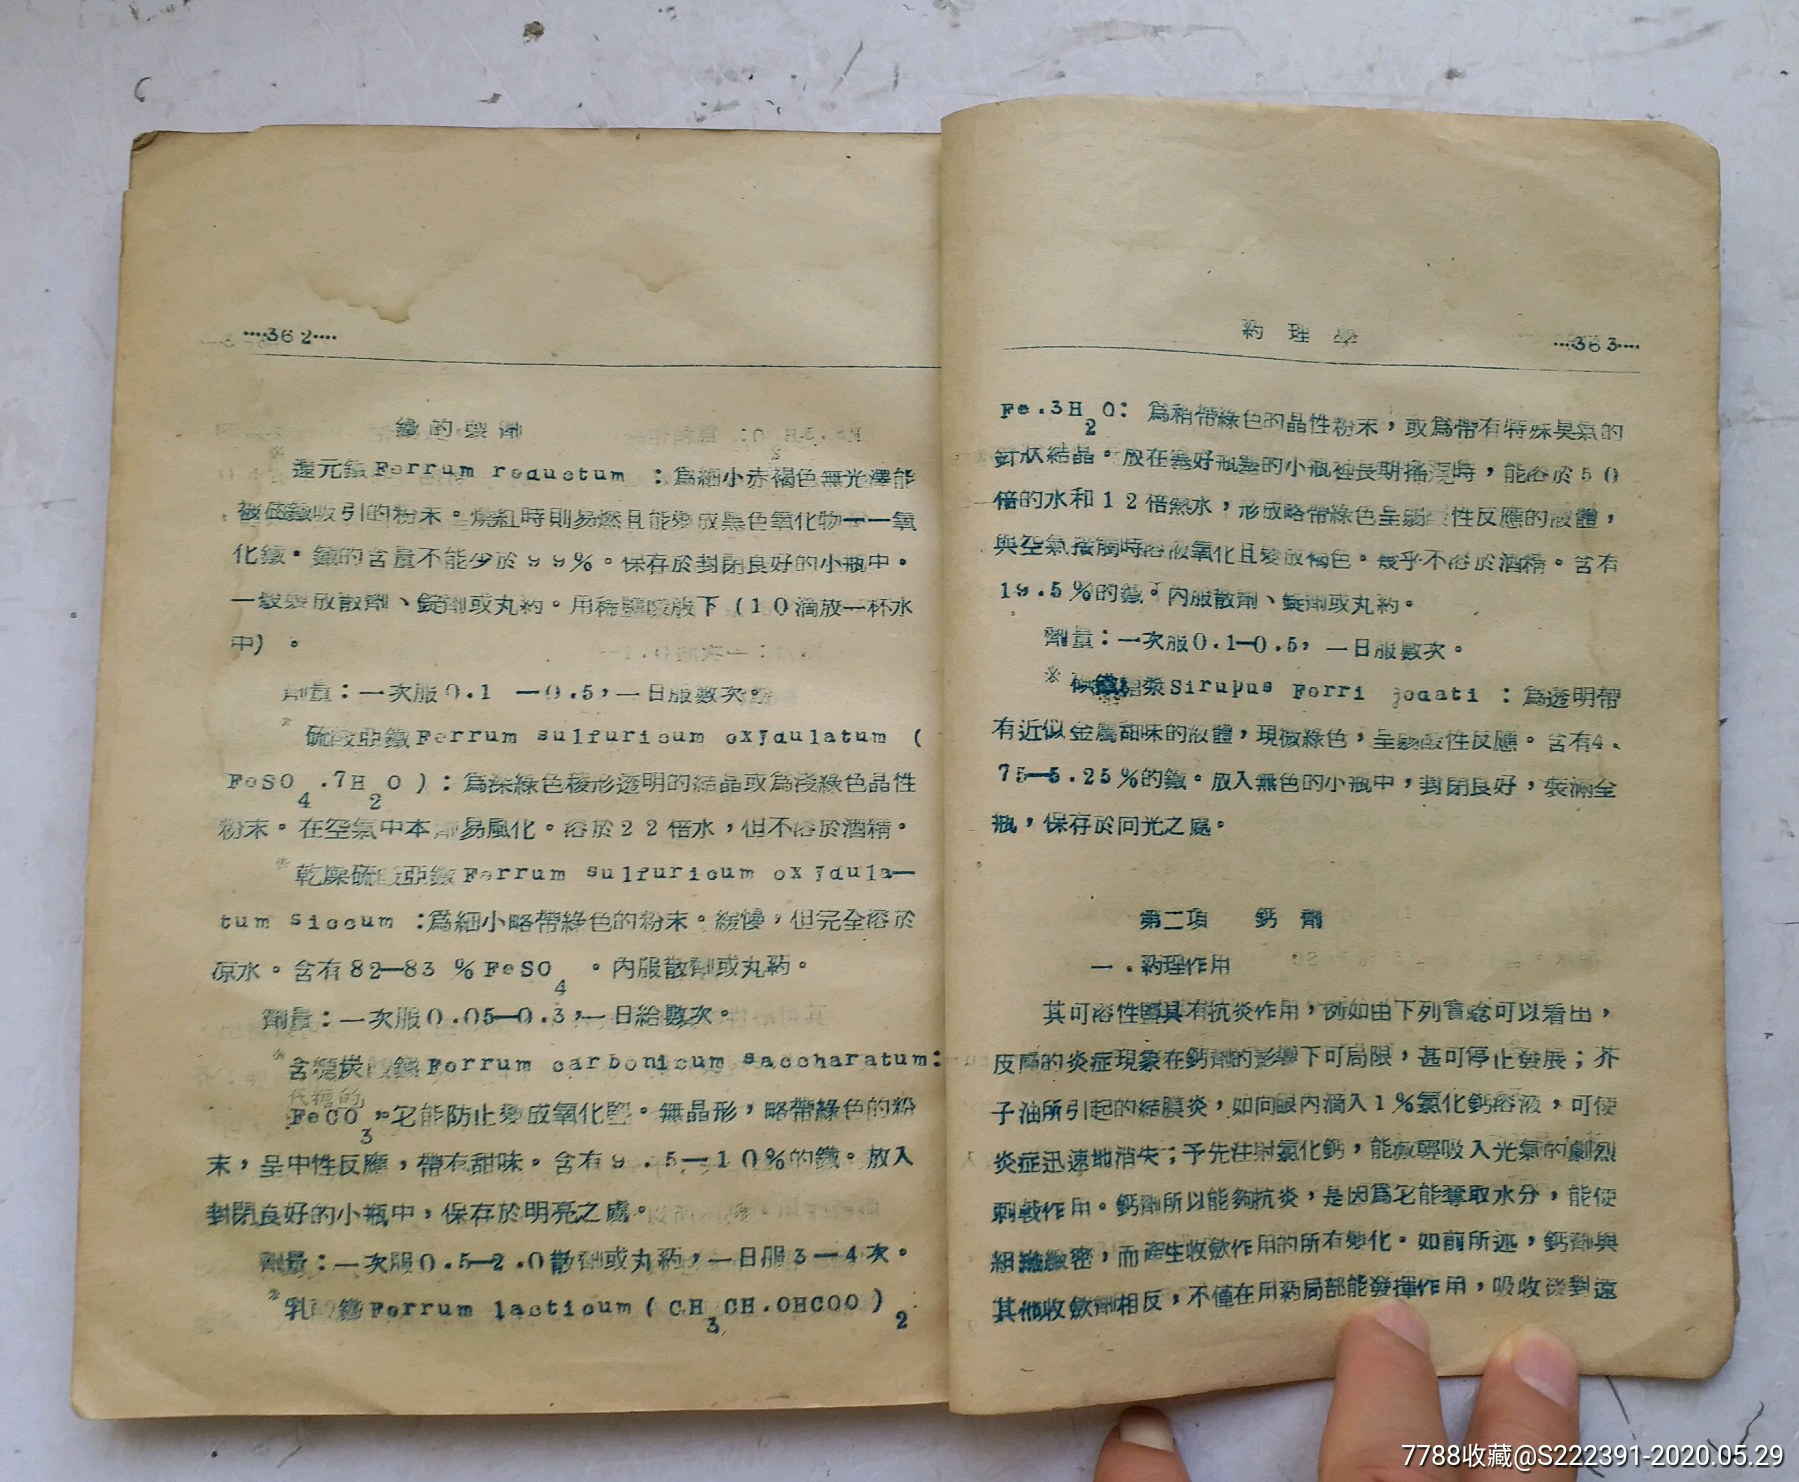 ····362····
鐵的製劑
還元鐵Ferrum reductum :爲細小赤褐色無光澤能
被磁鐵吸引的粉末。燒紅時則易燃且能變成黑色氧化物——氧
化鐵。鐵的含量不能少於99%。保存於封閉良好的小瓶中。
一般製成散劑、錠劑或丸葯。用稀鹽酸服下(10滴放一杯水
中)。
劑量:一次服0.1 —0.5,一日服數次。
* 硫酸亞鐵Ferrum sulfuricum oxydulatum (
FeSO4.7H2O):爲深綠色稜形透明的結晶或爲淺綠色晶性
粉末。在空氣中本劑易風化。溶於22倍水,但不溶於酒精。
* 乾燥硫酸亞鐵Ferrum sulfuricum oxydula—
tum siccum :爲細小略帶綠色的粉末。緩慢,但完全溶於
凉水。含有82—83 %FeSO4 。內服散劑或丸葯。
劑量:一次服0.05—0.3,一日給數次。
* 含糖炭酸鐵Ferrum carbonicum saccharatum:
代糖的
FeCO3,它能防止變成氧化鹽。無晶形,略帶綠色的粉
末,呈中性反應,帶有甜味。含有9.5—10%的鐵。放入
封閉良好的小瓶中,保存於明亮之處。
劑量:一次服0.5—2.0散劑或丸葯,一日服3—4次。
* 乳酸鐵Ferrum lacticum(CH3CH.OHCOO)2
葯理學
····363····
Fe.3H2O: 爲稍帶綠色的晶性粉末,或爲帶有特殊臭氣的
針狀結晶。放在塞好瓶塞的小瓶裡長期搖盪時,能溶於50
倍的水和12倍熱水,形成略帶綠色呈弱酸性反應的液體,
與空氣接觸時溶液氧化且變成褐色。幾乎不溶於酒精。含有
19.5%的鐵。內服散劑、錠劑或丸葯。
劑量:一次服0.1—0.5, 一日服數次。
※ 糖漿Sirupus Ferri jodati :爲透明帶
有近似金屬甜味的液體,現微綠色,呈弱酸性反應。含有4.
75—5.25%的鐵。放入無色的小瓶中,封閉良好,裝滿全
瓶,保存於向光之處。
第二項 鈣劑
一.葯理作用
其可溶性鹽具有抗炎作用,例如由下列實驗可以看出,
皮膚的炎症現象在鈣劑的影響下可局限,甚可停止發展;芥
子油所引起的結膜炎,如向眼內滴入1%氯化鈣溶液,可使
炎症迅速地消失;予先注射氯化鈣,能減輕吸入光氣的劇烈
刺戟作用。鈣劑所以能夠抗炎,是因爲它能奪取水分,能使
組織緻密,而產生收歛作用的所有變化。如前所述,鈣劑與
其他收歛劑相反,不僅在用葯局部能發揮作用,吸收後對遠
7788收藏@S222391-2020.05.29